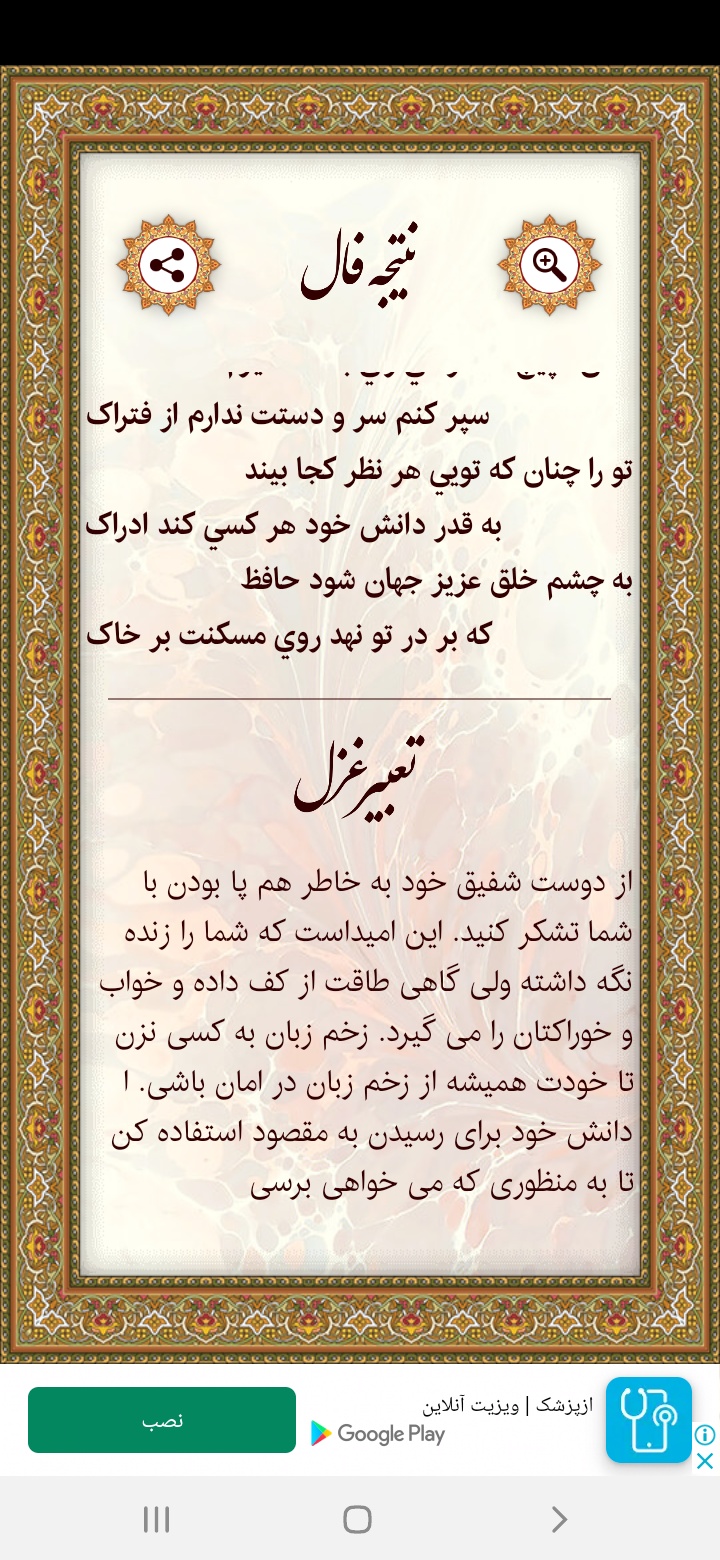 نتیجه فال
سپر کنم سر و دستت ندارم از فتراک
تو را چنان که تويي هر نظر کجا بيند
به قدر دانش خود هر کسي کند ادراک
به چشم خلق عزيز جهان شود حافظ
که بر در تو نهد روي مسکنت بر خاک
تعبیر غزل
از دوست شفیق خود به خاطر هم پا بودن با
شما تشکر کنید. این امیداست که شما را زنده
نگه داشته ولی گاهی طاقت از کف داده و خواب
و خوراکتان را می گیرد. زخم زبان به کسی نزن
تا خودت همیشه از زخم زبان در امان باشی. ا
دانش خود برای رسیدن به مقصود استفاده کن
تا به منظوری که می خواهی برسی
ازپزشک | ویزیت آنلاین
Google Play
نصب